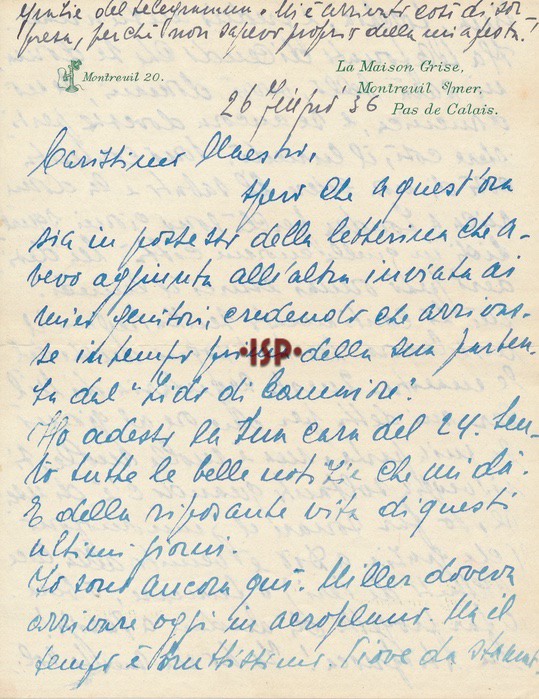 Grazie del telegramma. Mi è arrivato così di sor-
presa, perché non sapevo proprio della mia festa!
Montreuil 20.
La Maison Grise,
Montreuil s/mer,
Pas de Calais.
26 Giugno 36
Carissimo Maestro,
spero che a quest'ora
sia in possesso della letterina che a-
vevo aggiunta all'altra inviata ai
miei genitori, credendo che arrivas-
se in tempo prima della sua parten-
za dal "Lido di Camaiore".
·ISP·
Ho adesso la Sua cara del 24. Sen-
to tutte le belle notizie che mi dà.
E della riposante vita di questi
ultimi giorni.
Io sono ancora qui. Miller doveva
arrivare oggi in aeroplano. Ma il
tempo è bruttissimo. Piove da stamat